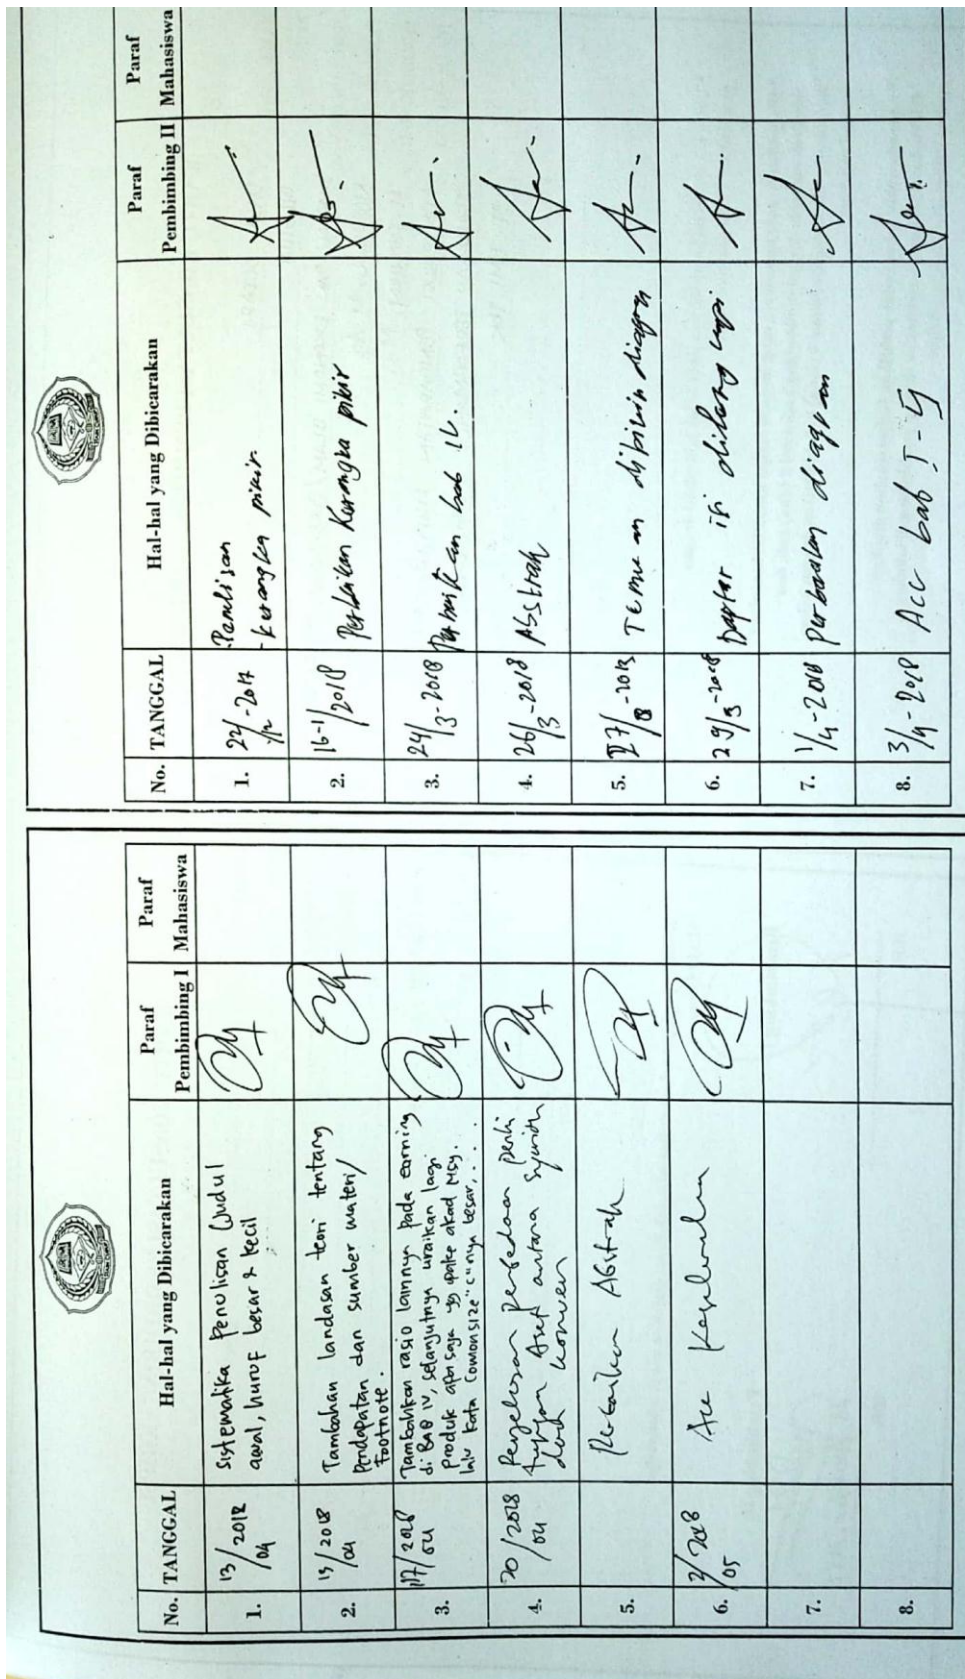 No. TANGGAL Hal-hal yang Dibicarakan Paraf Pembimbing I Paraf Mahasiswa
1. 13/2018 04 Sistematika Penulisan Judul
awal, huruf besar & kecil
2. /2018 04 Tambahan landasan teori tentang
Pendapatan dan sumber materi/
Footnote.
3. 17/2018 04 Tambahkan rasio lainnya pada earning
di BAB IV, selanjutnya uraikan lagi
produk apa saja yg pake akad Msy.
lalu kata Comonsize "c" nya besar, . . .
4. 20/2018 04 Penjelasan perbedaan perlu
Aset antara Syariah
dan konven
5. Perbaikan Abstrak
6. 2/2018 05 Acc Keseluruhan
7.
8.
No. TANGGAL Hal-hal yang Dibicarakan Paraf Pembimbing II Paraf Mahasiswa
1. 22/-2017 - Penulisan
- kerangka pikir
2. 16-1/2018 Perbaikan Kerangka pikir
3. 24/3-2018 Perbaikan bab IV.
4. 26/3-2018 Abstrak
5. Temuan dibikin diagram
6. 29/3-2018 Daptar isi
7. 1/4-2018 Perbaikan diagram
8. 3/4-2018 Acc bab I -